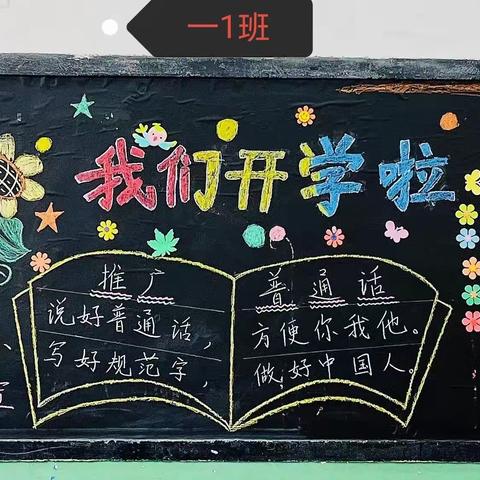 一1班
我们开学啦
推广
说好普通话，
写好规范字，
普通话
方便你我他。
做好中国人。